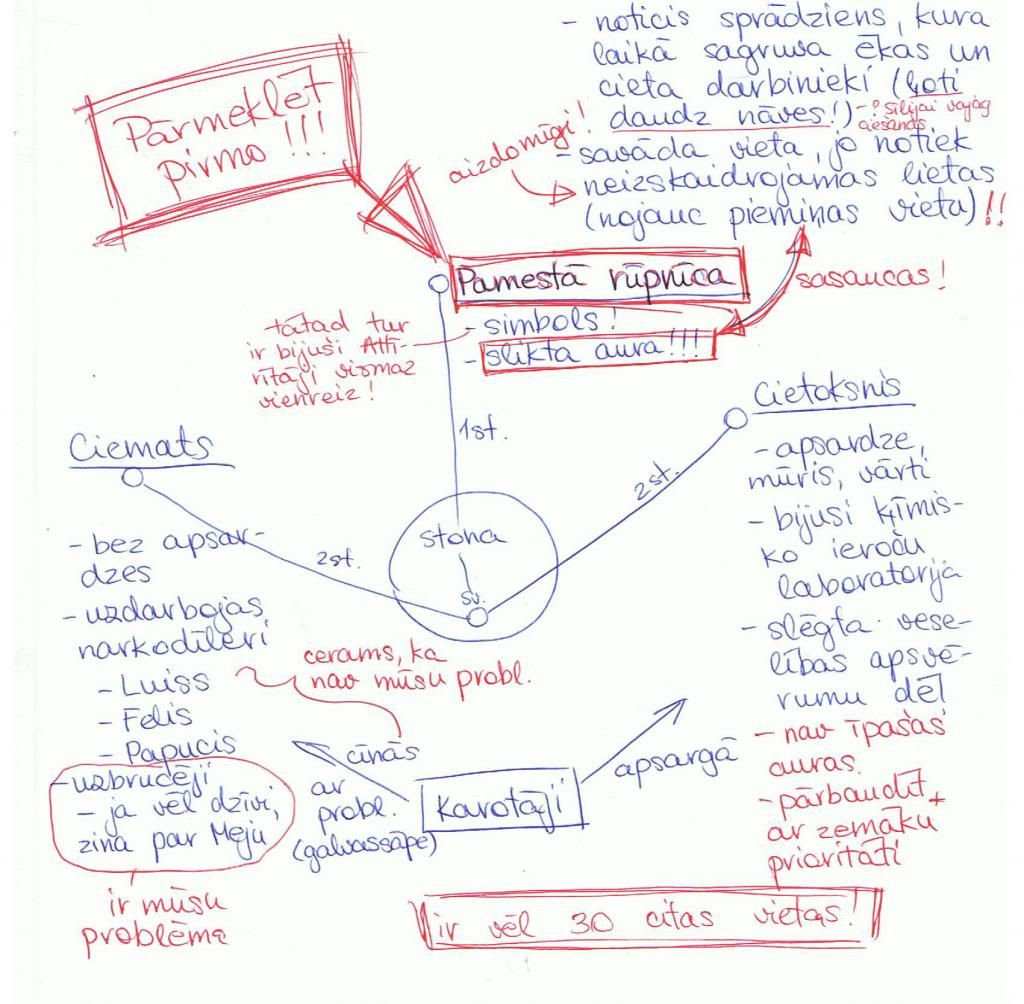 - noticis sprādziens, kura
laikā sagruva ēkas un
cieta darbinieki (ļoti
daudz nāves!) - ? Silijai vajag
ciešanas
Pārmeklēt
pirmo !!!
aizdomīgi!
- savāda vieta, jo notiek
neizskaidrojamas lietas
(nojauc piemiņas vietu) !!
Pamestā rūpnīca
sasaucas!
- simbols!
- slikta aura!!!
tātad tur
ir bijuši Attī-
rītāji vismaz
vienreiz!
1st.
Cietoksnis
- apsardze,
mūris, vārti
- bijusi ķīmis-
ko ieroču
laboratorija
- slēgta vese-
lības apsvē-
rumu dēļ
- nav īpašas
auras.
- pārbaudīt
ar zemāku
prioritāti
2st.
Ciemats
2st.
stoha
sv.
- bez apsar-
dzes
- uzdarbojas
narkodīleri
- Luiss
- Felis
- Papucis
cerams, ka
nav mūsu probl.
- uzbrucēji
- ja vēl dzīvi,
zina par Meju
ir mūsu
problēma
cīnās
ar
probl.
(galvassāpe)
Karotāji
apsargā
ir vēl 30 citas vietas!